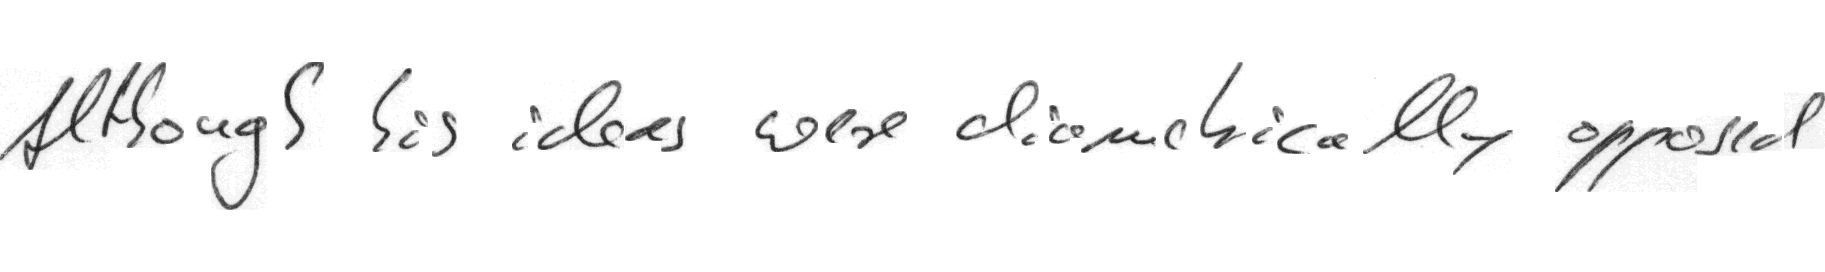 Although his ideas were diametrically opposed